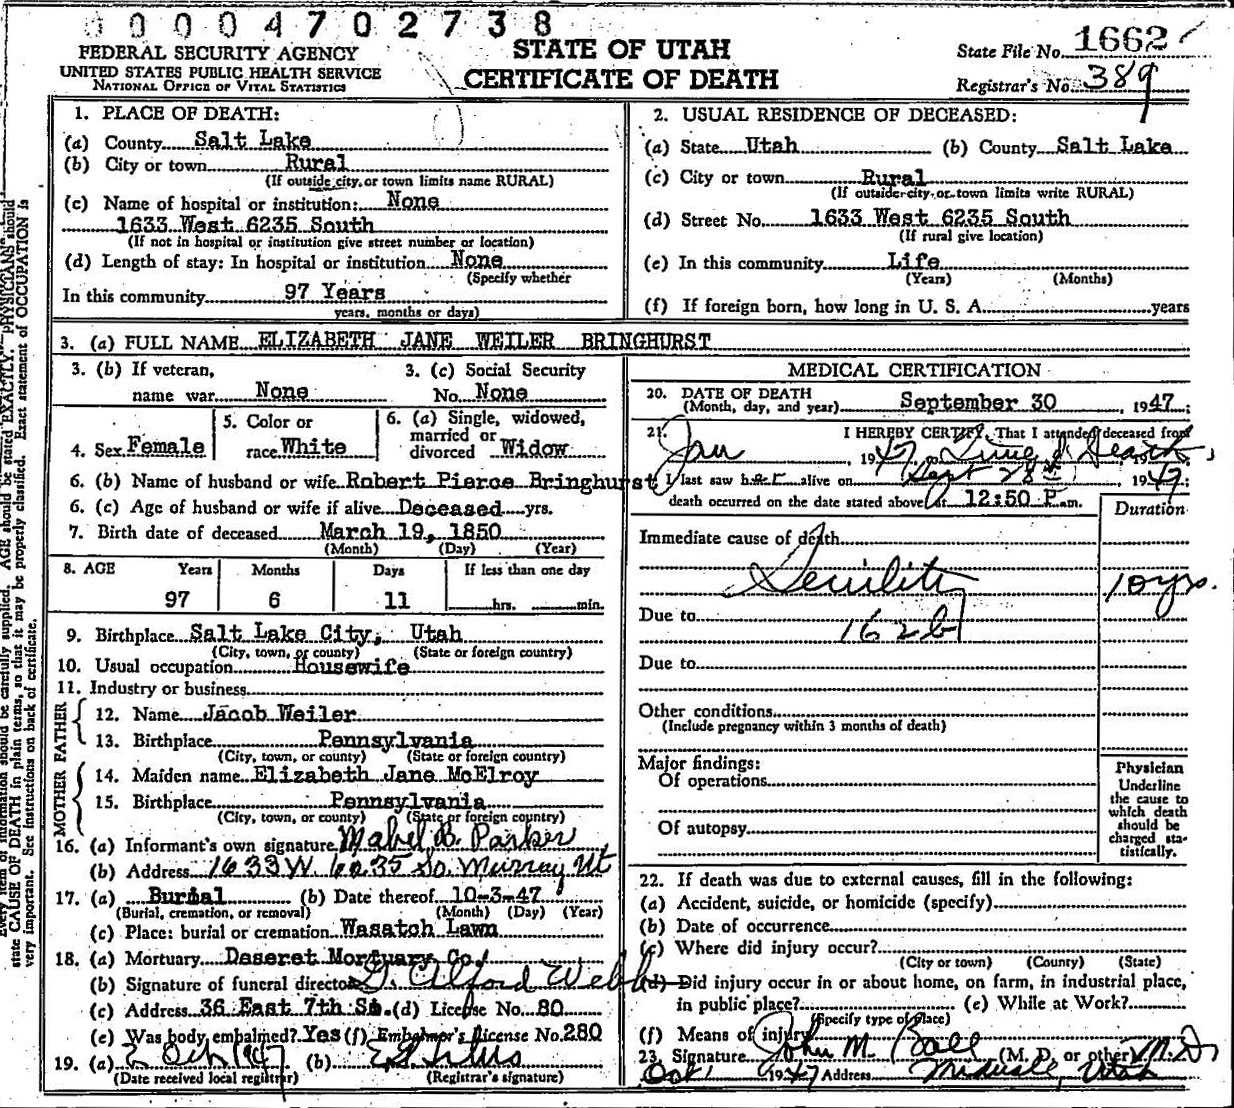 00004702738
FEDERAL SECURITY AGENCY
UNITED STATES PUBLIC HEALTH SERVICE
NATIONAL OFFICE OF VITAL STATISTICS
STATE OF UTAH
CERTIFICATE OF DEATH
State File No. 1662
Registrar's No. 389
1. PLACE OF DEATH:
(a) County Salt Lake
(b) City or town Rural
(If outside city or town limits name RURAL)
(c) Name of hospital or institution: None
1633 West 6235 South
(If not in hospital or institution give street number or location)
(d) Length of stay: In hospital or institution None
(Specify whether
In this community 97 Years
years, months or days)
2. USUAL RESIDENCE OF DECEASED:
(a) State Utah (b) County Salt Lake
(c) City or town Rural
(If outside city or town limits write RURAL)
(d) Street No. 1633 West 6235 South
(If rural give location)
(e) In this community Life
(Years) (Months)
(f) If foreign born, how long in U. S. A. years
3. (a) FULL NAME ELIZABETH JANE WEILER BRINGHURST
3. (b) If veteran, name war None
3. (c) Social Security No. None
4. Sex Female
5. Color or race White
6. (a) Single, widowed, married or divorced Widow
6. (b) Name of husband or wife Robert Pierce Bringhurst
6. (c) Age of husband or wife if alive Deceased yrs.
7. Birth date of deceased March 19, 1850
(Month) (Day) (Year)
8. AGE Years Months Days If less than one day
97 6 11 hrs. min.
9. Birthplace Salt Lake City, Utah
(City, town, or county) (State or foreign country)
10. Usual occupation Housewife
11. Industry or business
FATHER
12. Name Jacob Weiler
13. Birthplace Pennsylvania
(City, town, or county) (State or foreign country)
MOTHER
14. Maiden name Elizabeth Jane McElroy
15. Birthplace Pennsylvania
(City, town, or county) (State or foreign country)
16. (a) Informant's own signature Mabel B. Parker
(b) Address 1633 W. 6235 So. Murray Ut
17. (a) Burial (b) Date thereof 10-3-47
(Burial, cremation, or removal) (Month) (Day) (Year)
(c) Place: burial or cremation Wasatch Lawn
18. (a) Mortuary Deseret Mortuary Co.
(b) Signature of funeral director G. Alford Webb
(c) Address 36 East 7th So. (d) License No. 80
(e) Was body embalmed? Yes (f) Embalmer's License No. 280
19. (a) 2 Oct 1947 (b)
(Date received local registrar) (Registrar's signature)
MEDICAL CERTIFICATION
20. DATE OF DEATH
(Month, day, and year) September 30, 1947;
21. I HEREBY CERTIFY, That I attended deceased from
Jan 1947, Time of Death, 19
I last saw her alive on Sept 28th, 1947;
death occurred on the date stated above at 12:50 P.m.
Duration
Immediate cause of death
Senility 10 yrs.
Due to 162b
Due to
Other conditions
(Include pregnancy within 3 months of death)
Major findings:
Of operations
Of autopsy
Physician
Underline
the cause to
which death
should be
charged sta-
tistically.
22. If death was due to external causes, fill in the following:
(a) Accident, suicide, or homicide (specify)
(b) Date of occurrence
(c) Where did injury occur?
(City or town) (County) (State)
(d) Did injury occur in or about home, on farm, in industrial place,
in public place? (e) While at Work?
(Specify type of place)
(f) Means of injury
23. Signature John M. Ball (M. D. or other) M.D.
Oct 1 1947 Address Midvale, Utah
Every item of information should be carefully supplied. AGE should be stated EXACTLY. PHYSICIANS should
state CAUSE OF DEATH in plain terms, so that it may be properly classified. Exact statement of OCCUPATION is
very important. See instructions on back of certificate.